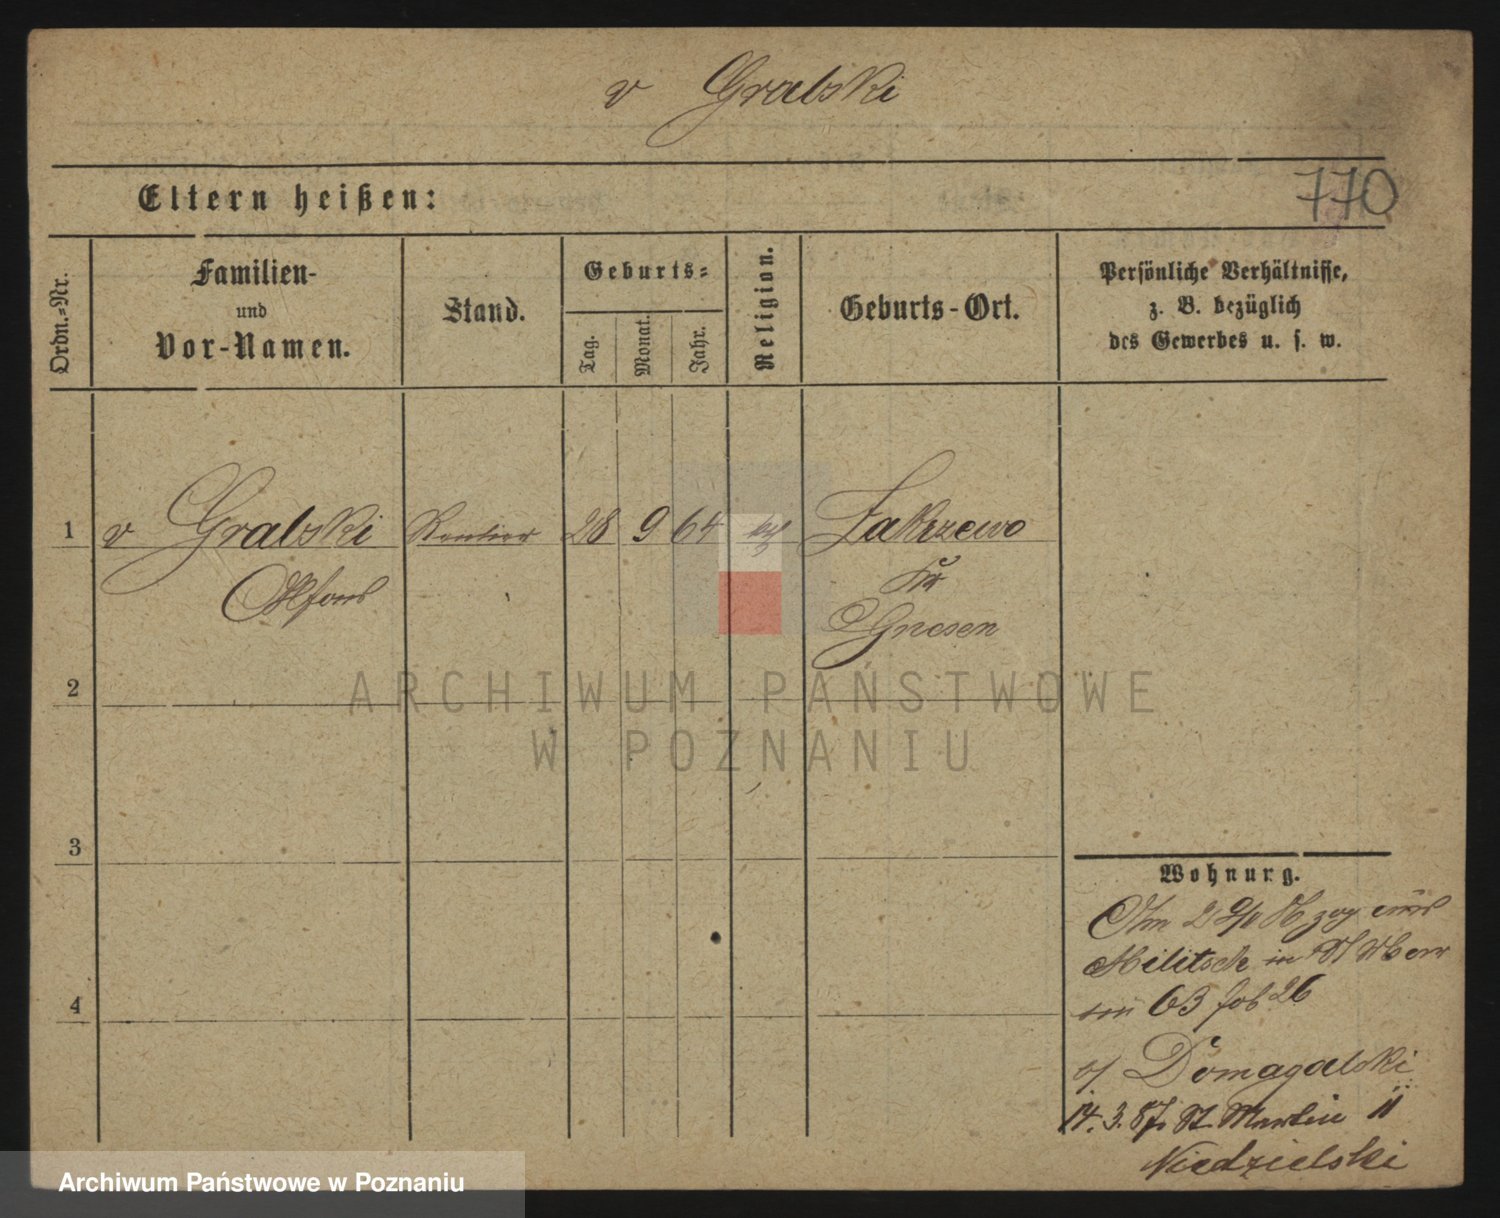 v Grabski
770
Eltern heißen:
Ordn.-Nr.
Familien-
und
Vor-Namen.
Stand.
Geburts-
Tag.
Monat.
Jahr.
Religion.
Geburts-Ort.
Persönliche Verhältnisse,
z. B. bezüglich
des Gewerbes u. s. w.
1 v Grabski Rentier 28 9 64 Zakrzewo
Alfons Kr
Gnesen
2
ARCHIWUM PAŃSTWOWE
W POZNANIU
3
4
Wohnung.
Militsch in
63
Domagalski
14. 3. 87. St. Martin 11
Niedzielski
Archiwum Państwowe w Poznaniu